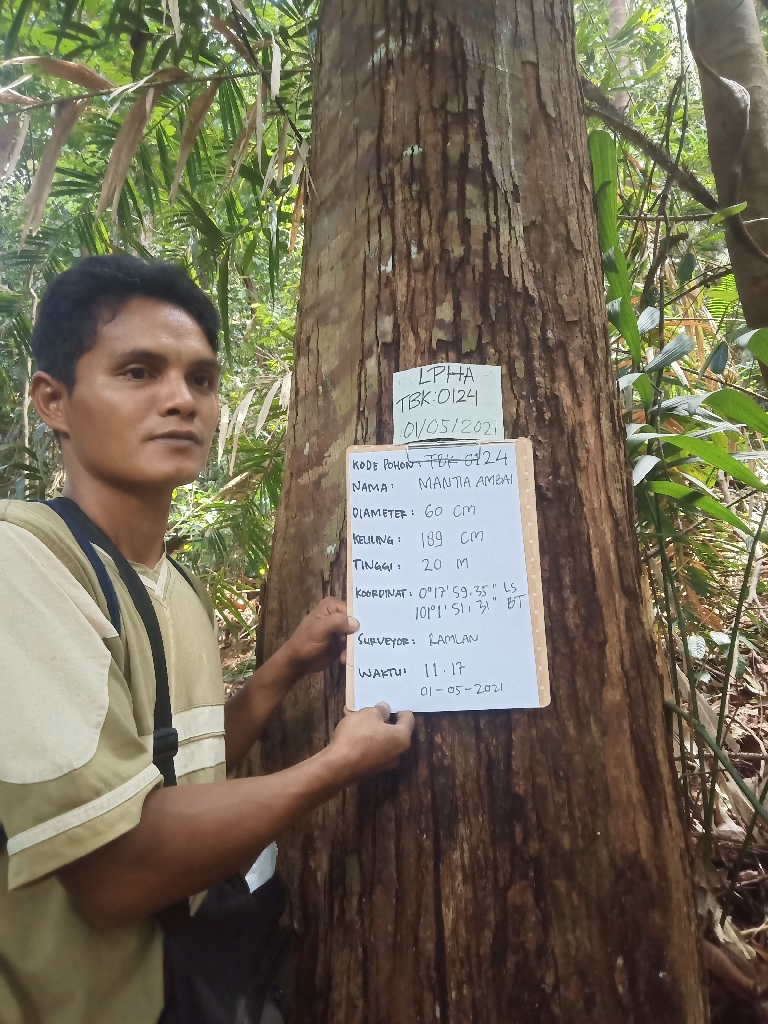 LPHA
TBK:0124
01/05/2021
KODE POHON: TBK 0124
NAMA: MANTIA AMBAI
DIAMETER: 60 CM
KELILING: 189 CM
TINGGI: 20 M
KOORDINAT: 0°17'59.35" LS
101°1'51,31" BT
SURVEYOR: RAMLAN
WAKTU: 11.17
01-05-2021